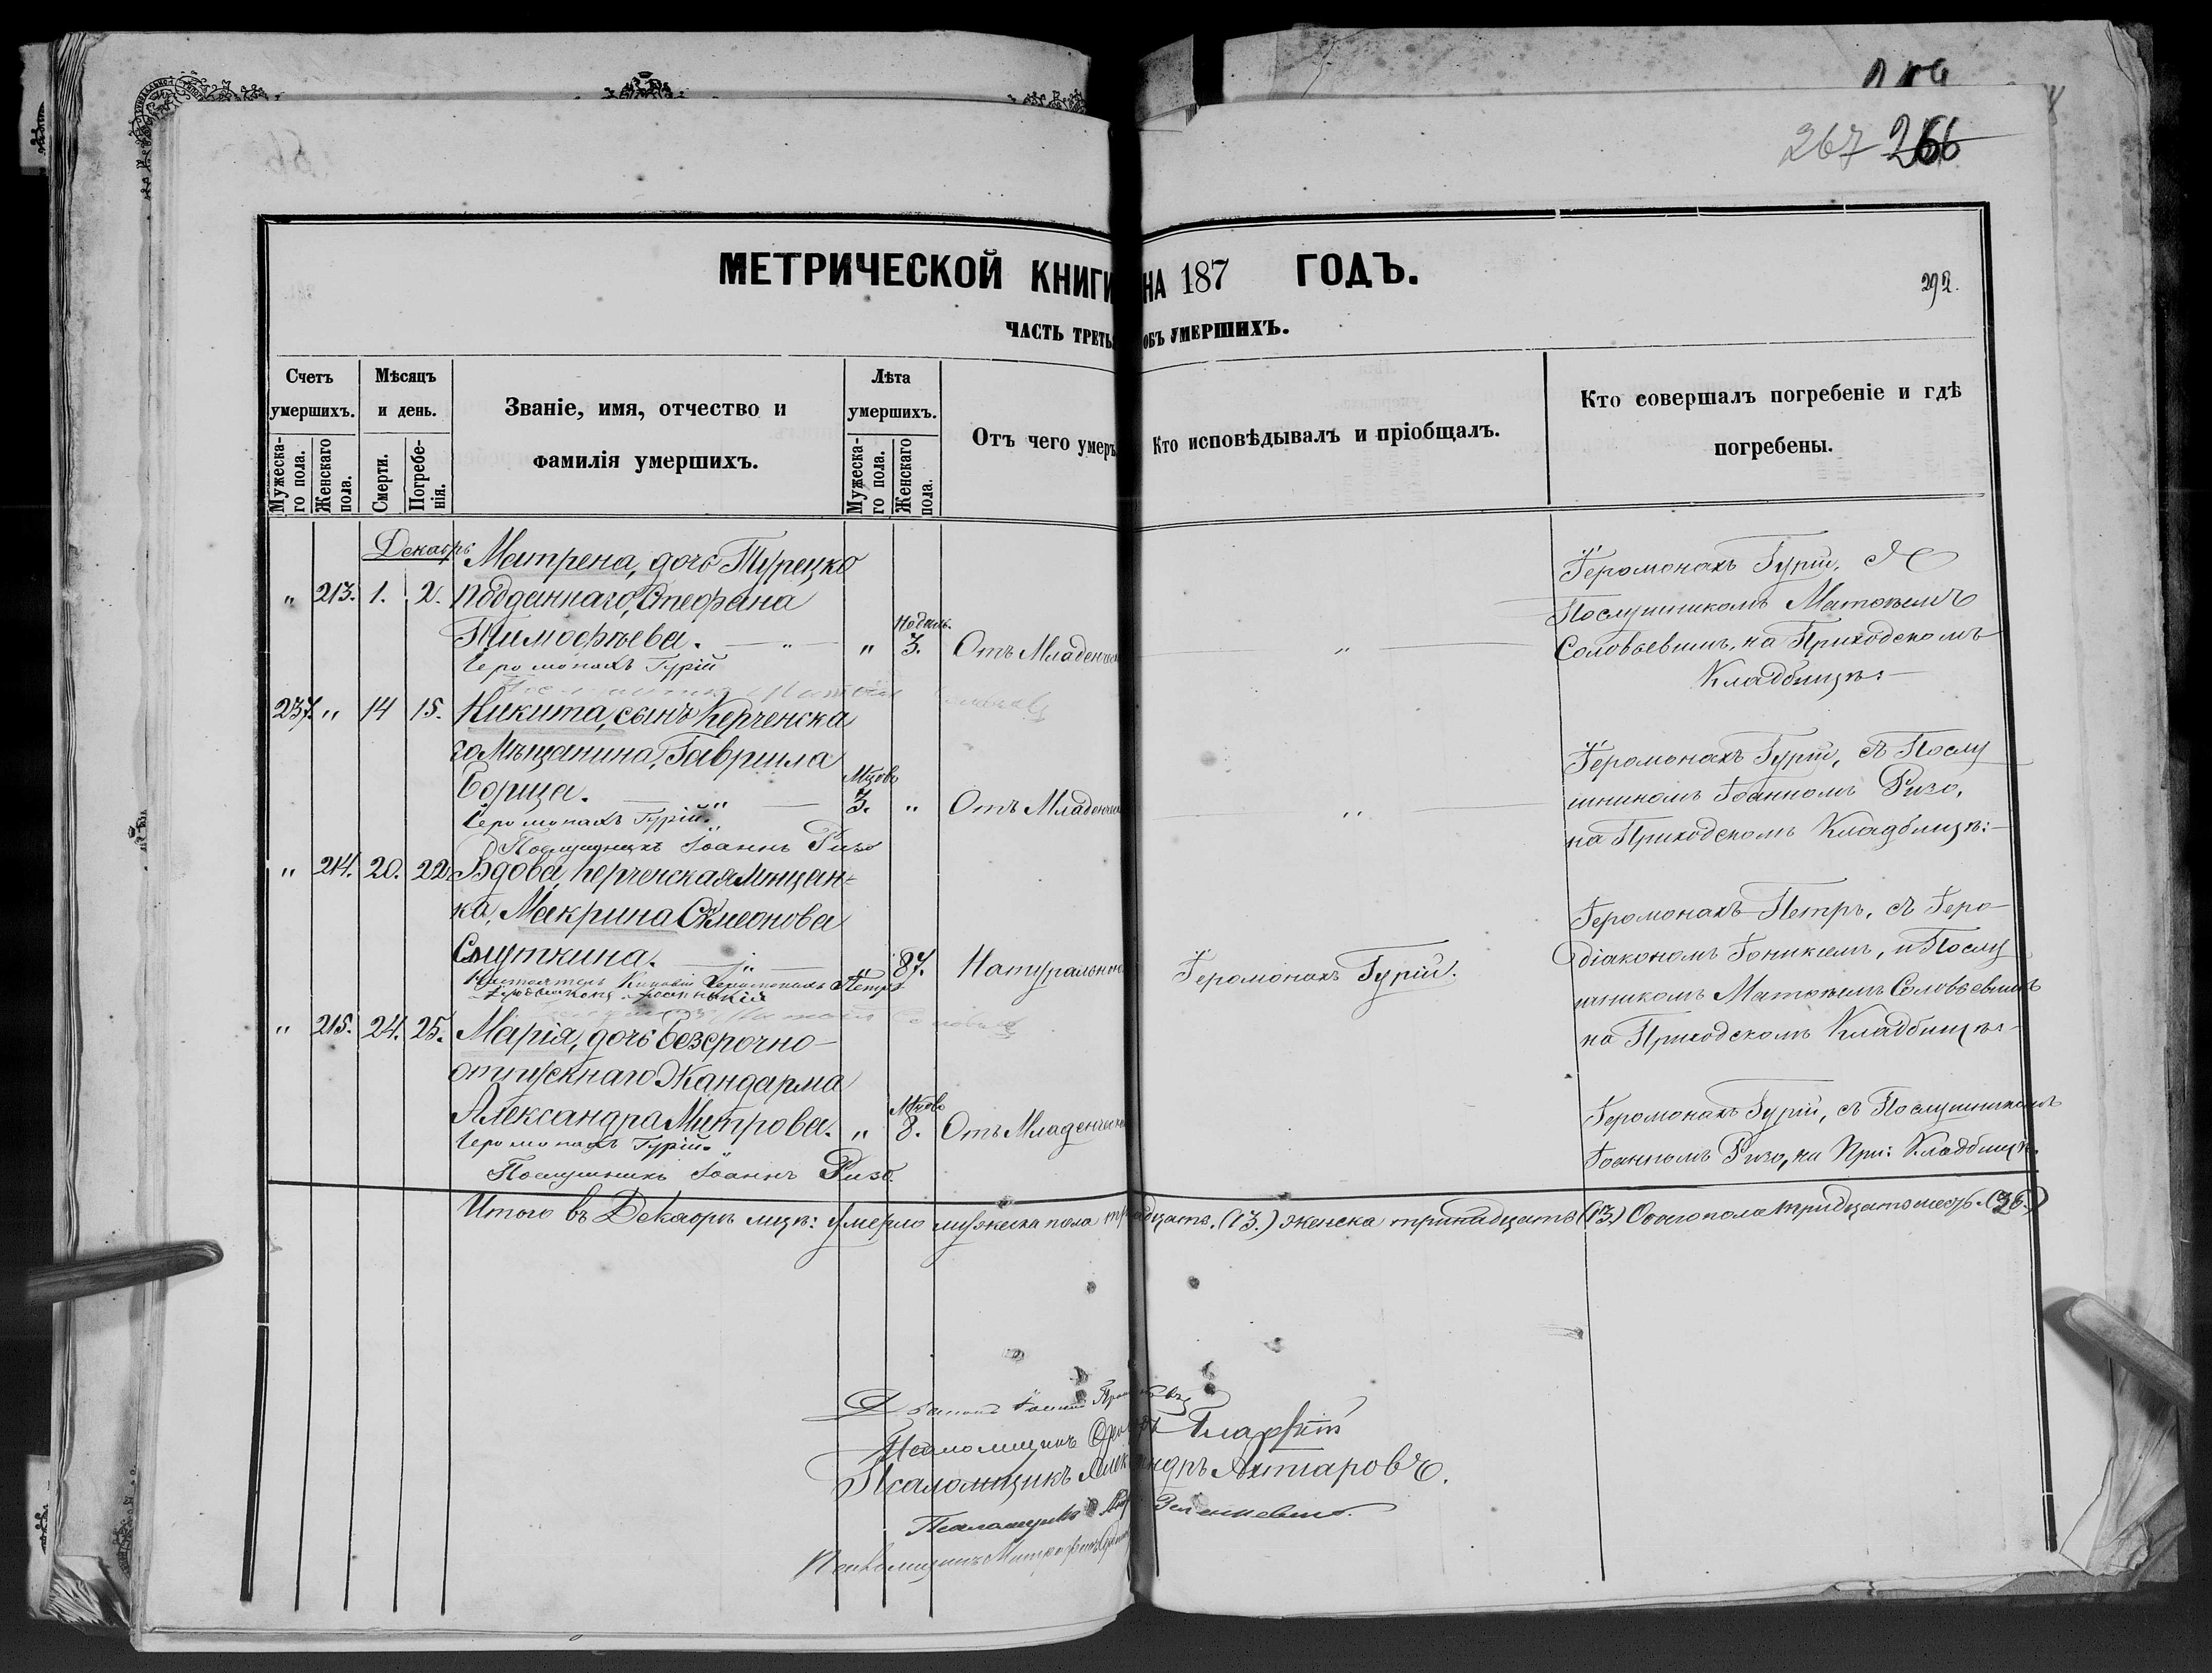 267 266
МЕТРИЧЕСКОЙ КНИГИ НА 187 ГОДЪ.
292.
ЧАСТЬ ТРЕТЬЯ ОБЪ УМЕРШИХЪ.
Счетъ умершихъ.
Мужеска-го пола.
Женскаго пола.
Мѣсяцъ и день.
Смерти.
Погребе-нія.
Званіе, имя, отчество и
фамилія умершихъ.
Лѣта умершихъ.
Мужеска-го пола.
Женскаго пола.
Отъ чего умеръ
Кто исповѣдывалъ и пріобщалъ.
Кто совершалъ погребеніе и гдѣ
погребены.
Декабрь
Матрена, дочь Турецко
" 213. 1. 2. подданнаго, Стефана
Тимофѣева. — " — " Недѣль. 3. Отъ Младенчес
Іеромонахъ Гурій
— " —
Іеромонахъ Гурій, съ
Послушникомъ Матѳеемъ
Соловьевымъ, на Приходскомъ
Кладбищѣ:—
237. " 14 15. Никита, сынъ Керченска
го Мѣщанина, Гавріила
Борща. — " — Мцовъ 3. " Отъ Младенчес
Іеромонахъ Гурій.
Послушникъ Іоаннъ Ризо
— " —
Іеромонахъ Гурій, съ Послу
шникомъ Іоанномъ Ризо,
на Приходскомъ Кладбищѣ:—
" 214. 20. 22. Вдова, Керченская Мѣщан=
ка, Макрина Симеонова
Смуткина. — " — " 87. Натурально
Іеромонахъ Петръ
Іеромонахъ Гурій.
Іеромонахъ Петръ, съ Іеро
діакономъ Іоникіемъ, и Послу
шникомъ Матѳеемъ Соловьевымъ
на Приходскомъ Кладбищѣ:—
" 215. 24. 25. Марія, дочь безсрочно-
отпускнаго Жандарма
Александра Митрова. " Мцовъ 8. Отъ Младенческ
Іеромонахъ Гурій.
Послушникъ Іоаннъ Ризо.
Іеромонахъ Гурій, съ Послушникомъ
Іоанномъ Ризо, на При: Кладбищѣ.
Итого въ Декабрѣ мцѣ: умерло мужеска пола (13.) женска тринадцать (13.) Обоего пола тридцать шесть (36.)
Псаломщикъ
Псаломщикъ Александръ Ахтіаровъ.
Псаломщикъ
Псаломщикъ Митрофанъ